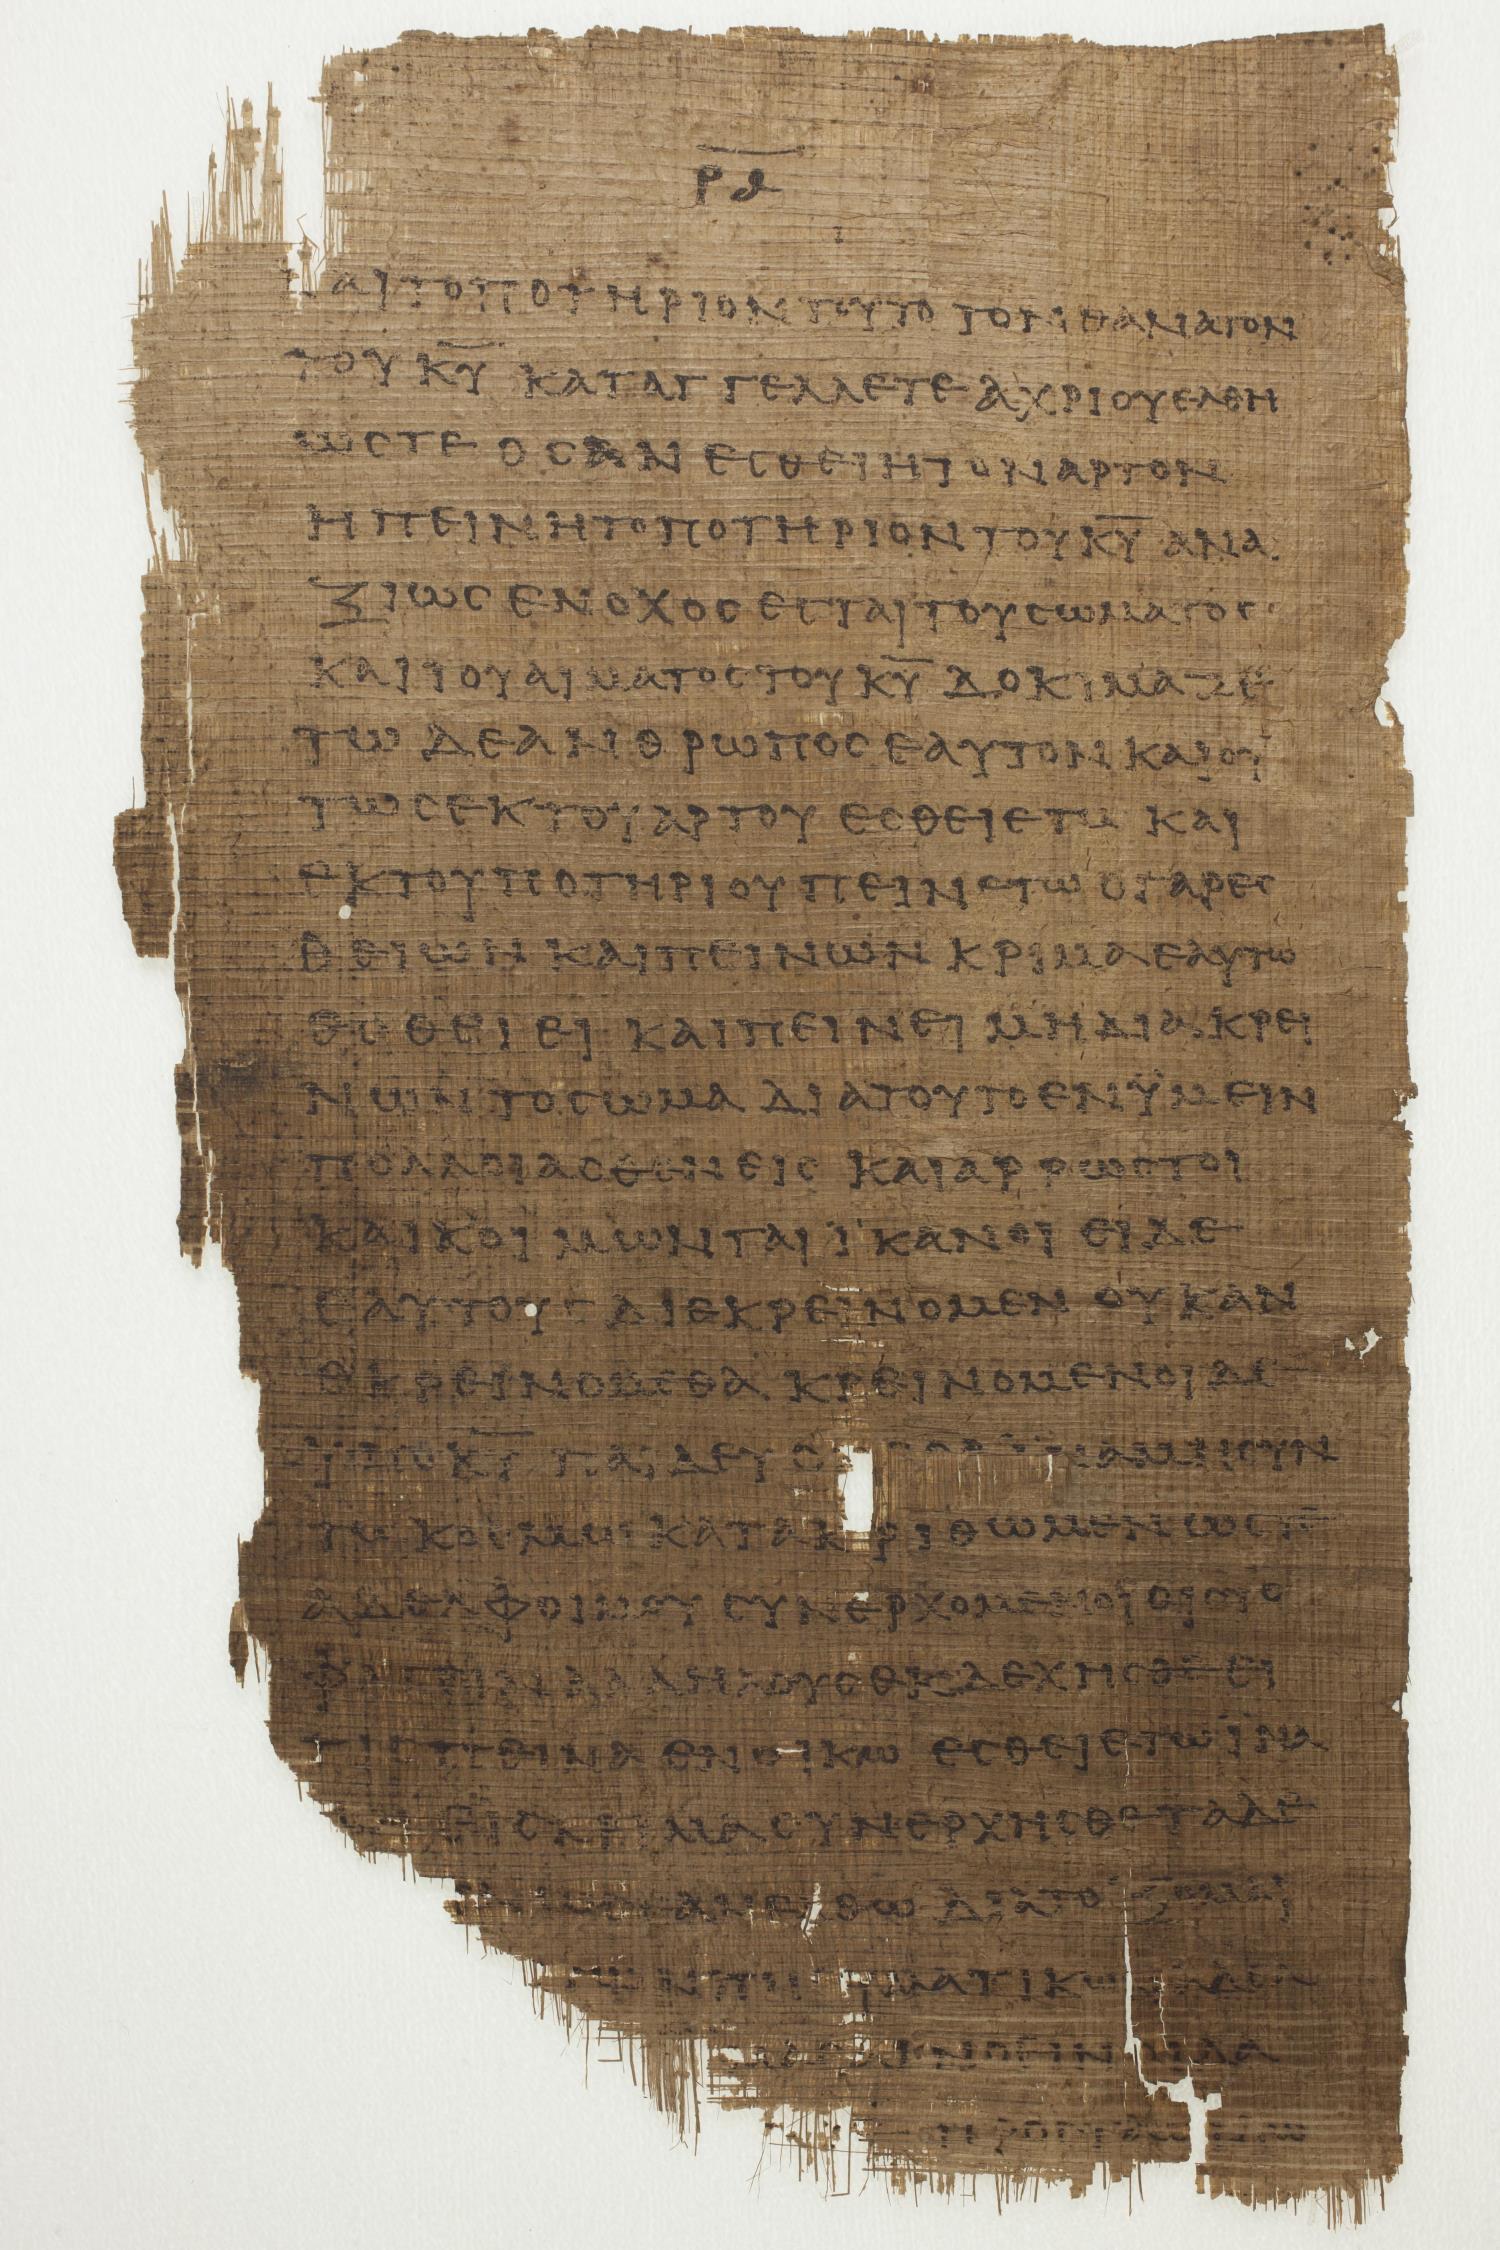 ΡΔ
ΚΑΙ ΤΟ ΠΟΤΗΡΙΟΝ ΤΟΥΤΟ ΤΟΝ ΘΑΝΑΤΟΝ
ΤΟΥ Κ̅Υ̅ ΚΑΤΑΓΓΕΛΛΕΤΕ ΑΧΡΙ ΟΥ ΕΛΘΗ
ΩϹΤΕ ΟϹ ΑΝ ΕϹΘΕΙΗ ΤΟΝ ΑΡΤΟΝ
Η ΠΕΙΝΗ ΤΟ ΠΟΤΗΡΙΟΝ ΤΟΥ Κ̅Υ̅ ΑΝΑ
ΞΙΩϹ ΕΝΟΧΟϹ ΕϹΤΑΙ ΤΟΥ ϹΩΜΑΤΟϹ
ΚΑΙ ΤΟΥ ΑΙΜΑΤΟϹ ΤΟΥ Κ̅Υ̅ ΔΟΚΙΜΑΖΕ
ΤΩ ΔΕ ΑΝΘΡΩΠΟϹ ΕΑΥΤΟΝ ΚΑΙ ΟΥ
ΤΩϹ ΕΚ ΤΟΥ ΑΡΤΟΥ ΕϹΘΕΙΕΤΩ ΚΑΙ
ΕΚ ΤΟΥ ΠΟΤΗΡΙΟΥ ΠΕΙΝΕΤΩ Ο ΓΑΡ ΕϹ
ΘΕΙΩΝ ΚΑΙ ΠΕΙΝΩΝ ΚΡΙΜΑ ΕΑΥΤΩ
ΕϹΘΕΙΕΙ ΚΑΙ ΠΕΙΝΕΙ ΜΗ ΔΙΑΚΡΕΙ
ΝΩΝ ΤΟ ϹΩΜΑ ΔΙΑ ΤΟΥΤΟ ΕΝ ΫΜΕΙΝ
ΠΟΛΛΟΙ ΑϹΘΕΝΕΙϹ ΚΑΙ ΑΡΡΩϹΤΟΙ
ΚΑΙ ΚΟΙΜΩΝΤΑΙ ΙΚΑΝΟΙ ΕΙ ΔΕ
ΕΑΥΤΟΥϹ ΔΙΕΚΡΕΙΝΟΜΕΝ ΟΥΚ ΑΝ
ΕΚΡΕΙΝΟΜΕΘΑ ΚΡΕΙΝΟΜΕΝΟΙ ΔΕ
ΥΠΟ Κ̅Υ̅ ΠΑΙΔΕΥΟ ΙΝΑ ΜΗ ϹΥΝ
ΤΩ ΚΟϹΜΩ ΚΑΤΑΚΡΙΘΩΜΕΝ ΩϹΤΕ
ΑΔΕΛΦΟΙ ΜΟΥ ϹΥΝΕΡΧΟΜΕΝΟΙ ΕΙϹ ΤΟ
ΦΑΓΕΙΝ ΑΛΛΗΛΟΥϹ ΕΚΔΕΧΗϹΘΕ ΕΙ
ΤΙϹ ΠΕΙΝΑ ΕΝ ΟΙΚΩ ΕϹΘΕΙΕΤΩ ΪΝΑ
ΕΙϹ ΚΡΙΜΑ ϹΥΝΕΡΧΗϹΘΕ ΤΑ ΔΕ
ΑΝ ΕΛΘΩ ΔΙΑΤΟΞΟΜΑΙ
ΤΩΝ ΠΝΕΥΜΑΤΙΚΩΝ
ΑΓΝΟΕΙΝ ΟΙΔΑ